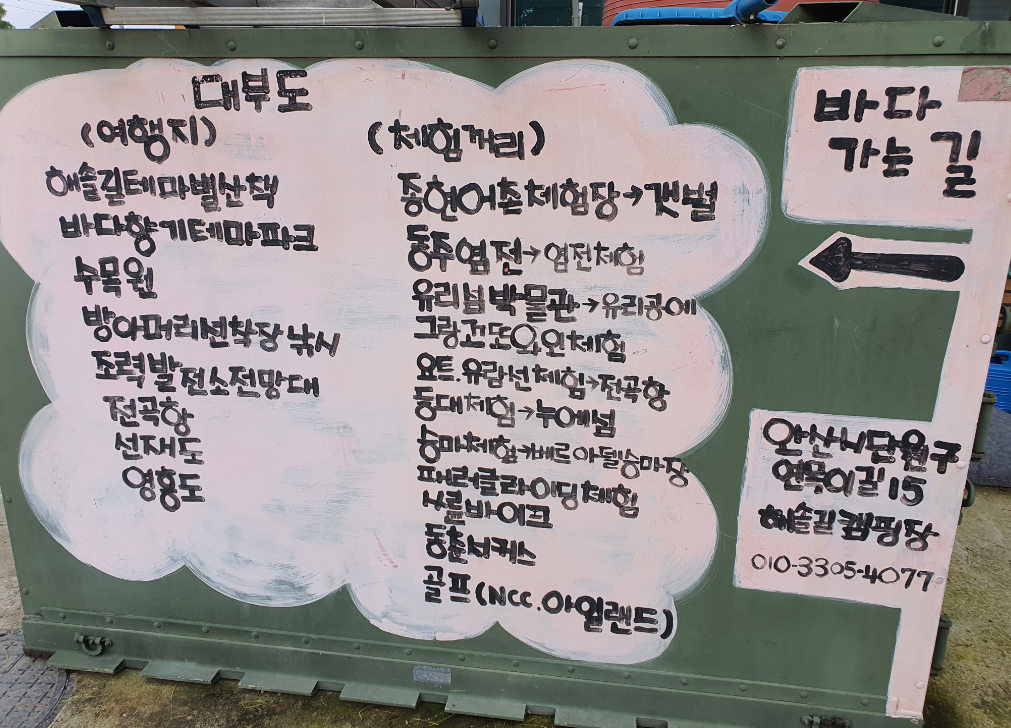 대부도
(여행지)
해솔길테마별산책
바다향기테마파크
수목원
방아머리선착장 낚시
조력발전소전망대
전곡항
선재도
영흥도
(체험꺼리)
종현어촌체험장→갯벌
동주염전→염전체험
유리섬박물관→유리공예
그랑꼬또와인체험
요트.유람선체험→전곡항
등대체험→누에섬
승마체험→베르아델승마장
패러글라이딩체험
사륜바이크
동춘서커스
골프(NCC.아일랜드)
바다
가는 길
안산시단원구
연목이길15
해솔길캠핑장
010-3305-4077